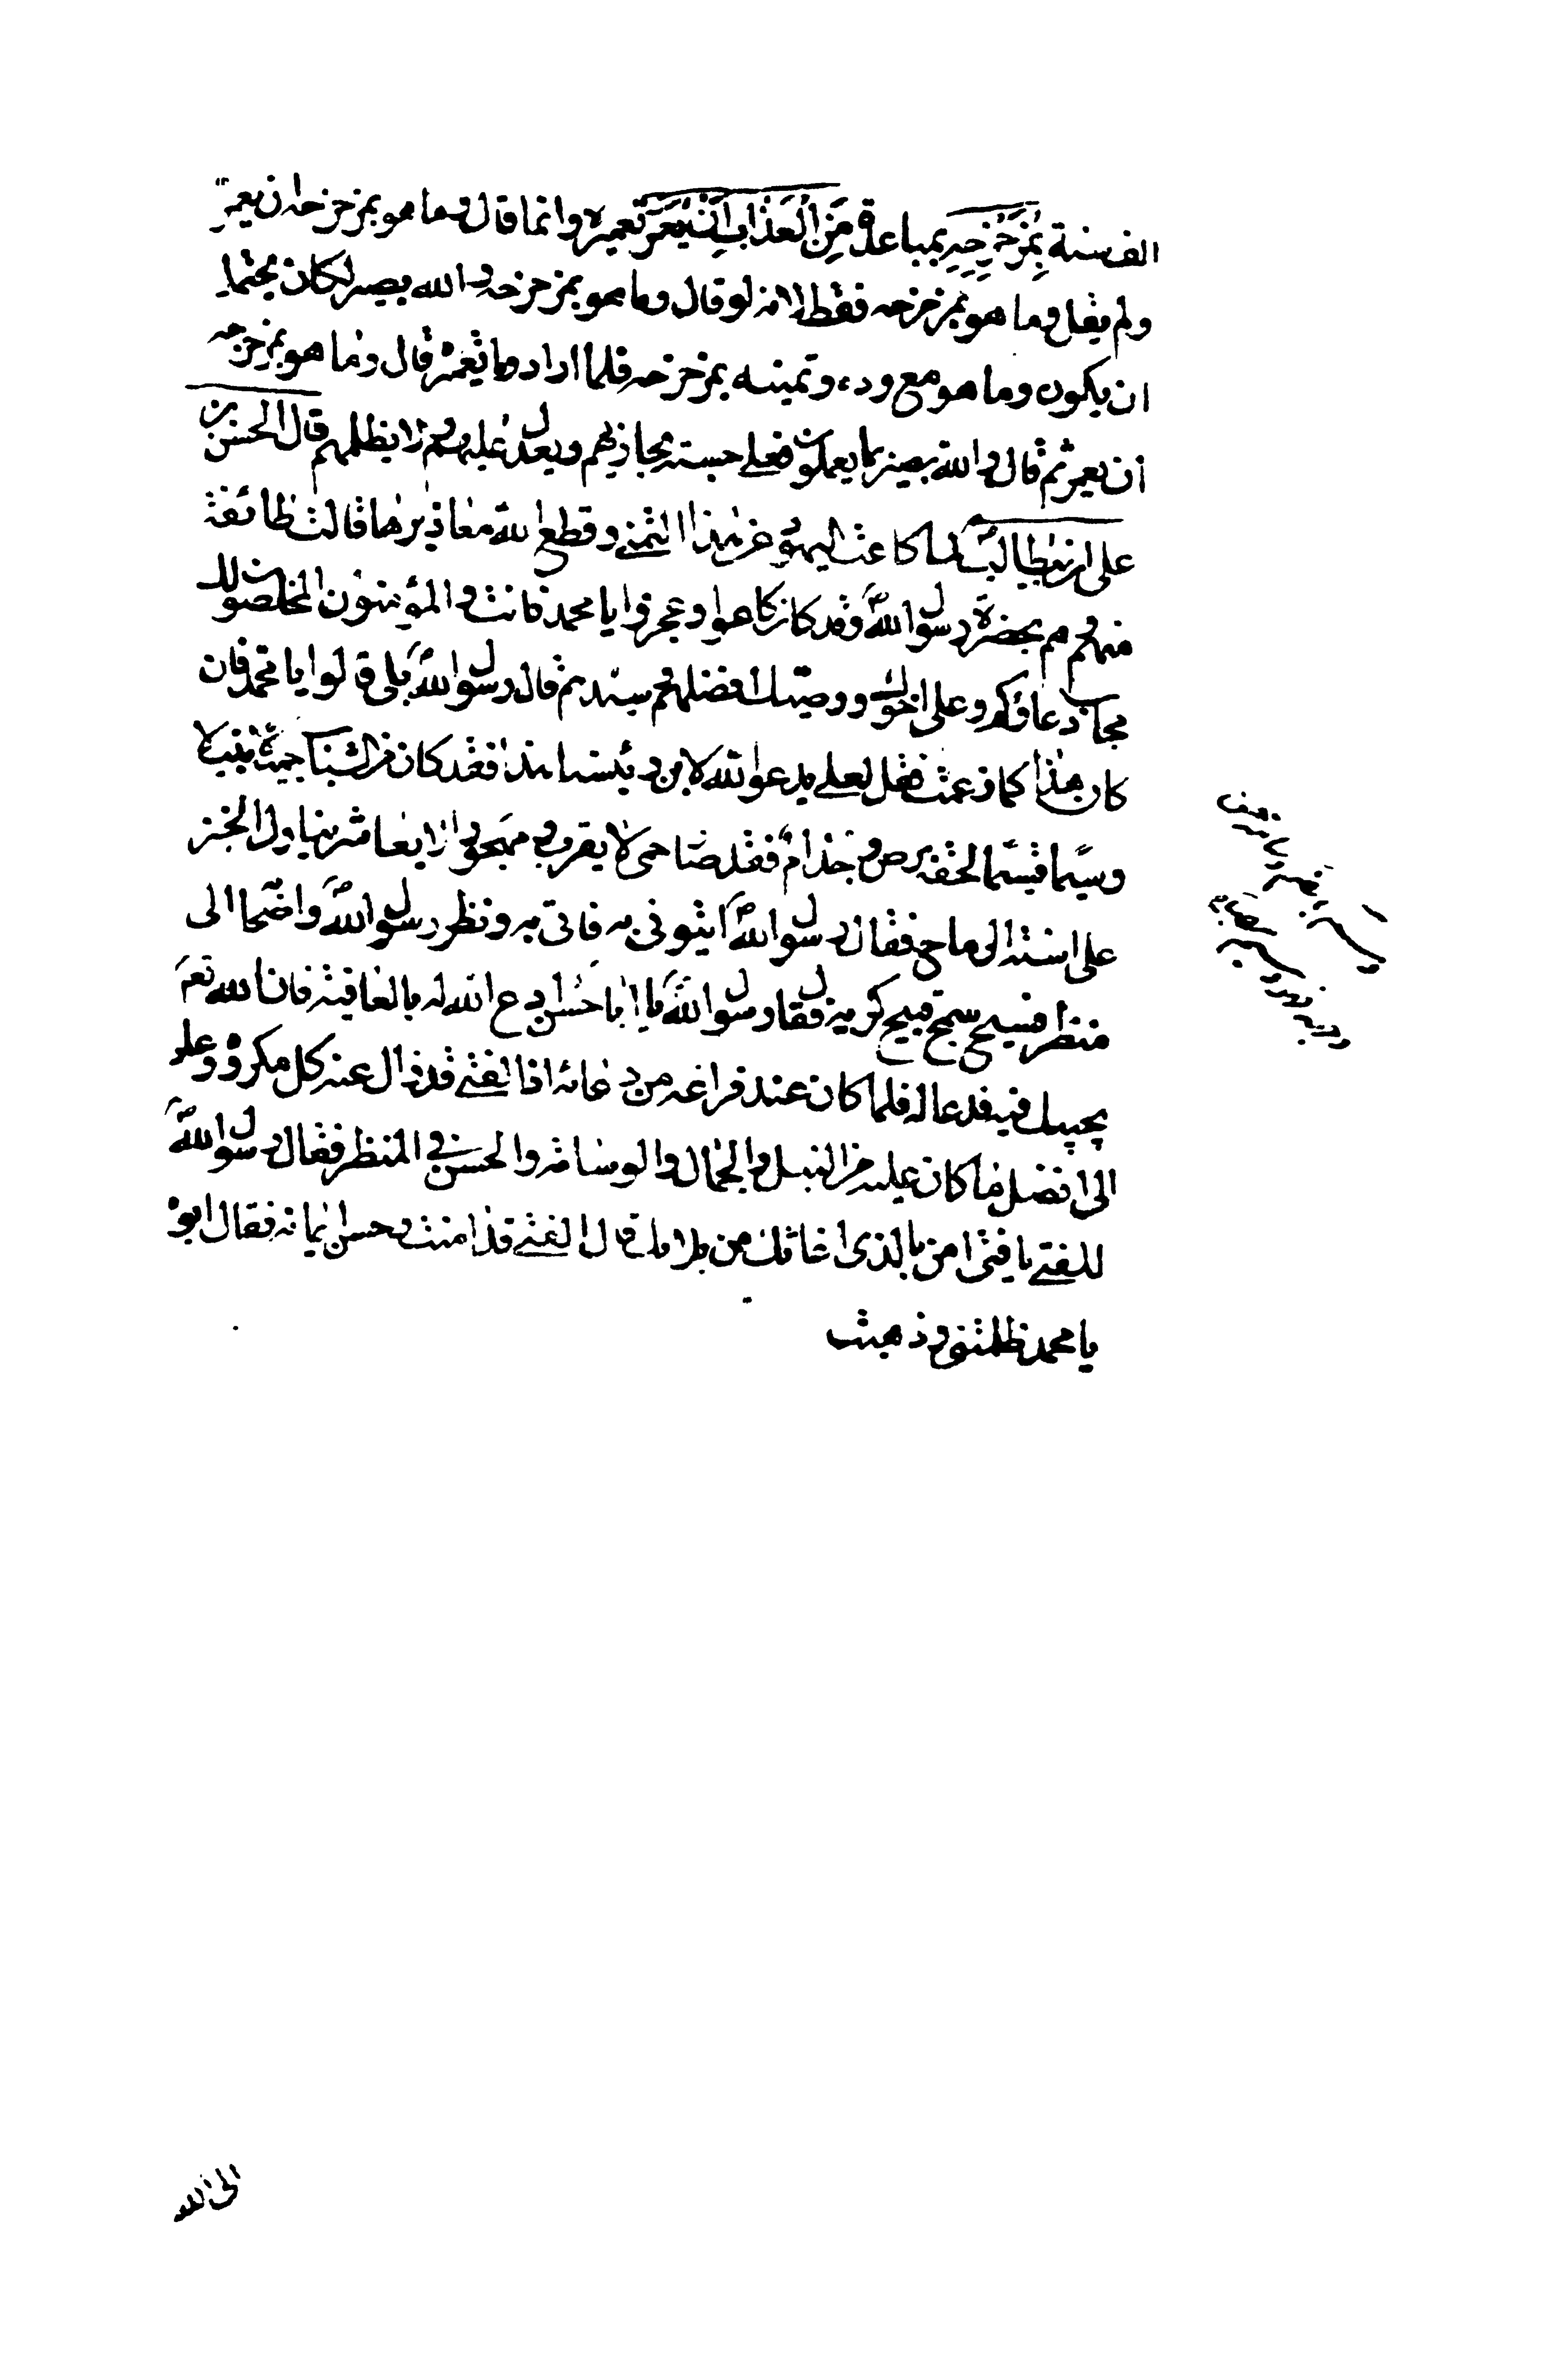 الف سنة بِمُزَحْزِحِهِ بمباعده مِنَ الْعَذَابِ اَنْ يُعَمَّرَ تعميره وانما قال وما هو بمزحزحه ان يعمر
ولم يقل وما هو بمزحزحه فقط لانه لو قال وما هو بمزحزحه والله بصير لكان يحتمل
ان يكون وما هو مع وده وتمنيه بمزحزحه فلما اراد وما تعميره قال وما هو بمزحزحه
ان يعمر ثم قال والله بصير بما يعملون فعلى حسبه يجازيهم ويعدل عليهم ولا يظلمهم قال الحسن بن
على ابن ابيطالبؑ لما كاعت اليهود عن هذا التمني وقطع الله معاذيرها قالت طائفة
منهم وهم بحضرة رسول اللهؐ وقد كانوا كاعوا وعجزوا يا محمد فانت والمؤمنون المخلصون لك
مجاب دعاؤكم وعلى اخوك ووصيك افضلهم وسيدهم قال رسول اللهؐ بلى قالوا يا محمد فان
كان هذا كما زعمت فقل لعلي يدعو الله لابن رئيسنا هذا فقد كان من الشباب جميلا نبيلا
وسيما قسيما لحقه برص وجذام فقد صار حمى لا يقرب ومهجورا لا يعاشر يناول الخبز
على اسنة الرماح فقال رسول اللهؐ ايتوني به فاتى به ونظر رسول اللهؐ واصحابه الى
منظر فسيح سمج قبيح كريه فقال رسول اللهؐ يا ابا حسن ادع الله له بالعافية فان الله تعم
يجيبك فيه فدعا له فلما كان عند فراغه من دعائه اذا الفتى قد زال عنه كل مكروه وعاد
الى افضل ما كان عليه من النبل والجمال والوسامة والحسن في المنظر فقال رسول اللهؐ
للفتى يا فتى امن بالذى اغاثك من بلائك قال الفتى قد امنت وحسن ايمانه فقال ابوه
يا محمد ظلمتني وذهبت